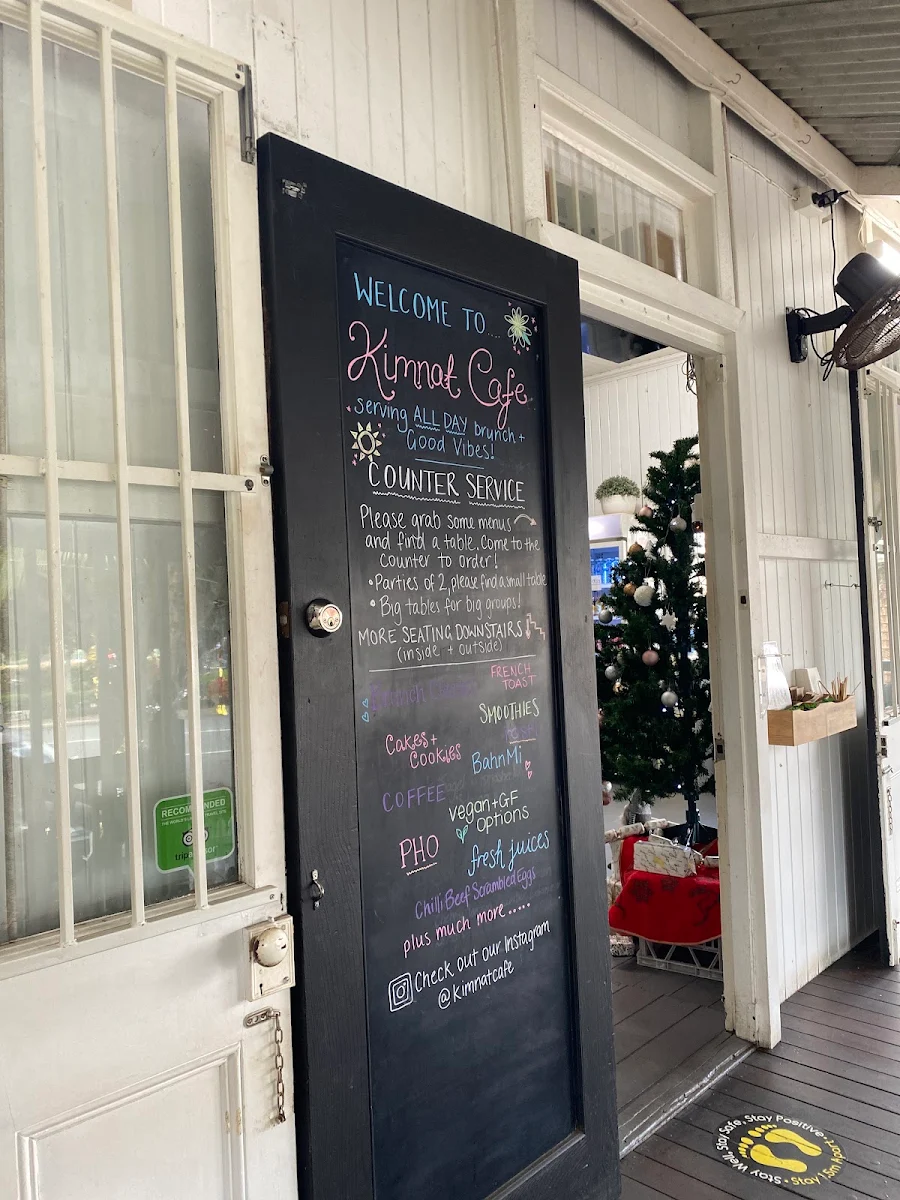 WELCOME TO.....
Kimnat Cafe
serving ALL DAY brunch +
Good Vibes!
COUNTER SERVICE
Please grab some menus
and find a table. Come to the
counter to order!
• Parties of 2, please find a small table
• Big tables for big groups!
MORE SEATING DOWNSTAIRS
(inside + outside)
FRENCH
TOAST
SMOOTHIES
Cakes +
Cookies
BahnMi
COFFEE
vegan + GF
options
PHO
fresh juices
Chilli Beef Scrambled Eggs
plus much more .....
Check out our Instagram
@kimnatcafe
RECOMMENDED
tripadvisor
Stay Well, Stay Safe, Stay Positive
Stay 1.5m Apart